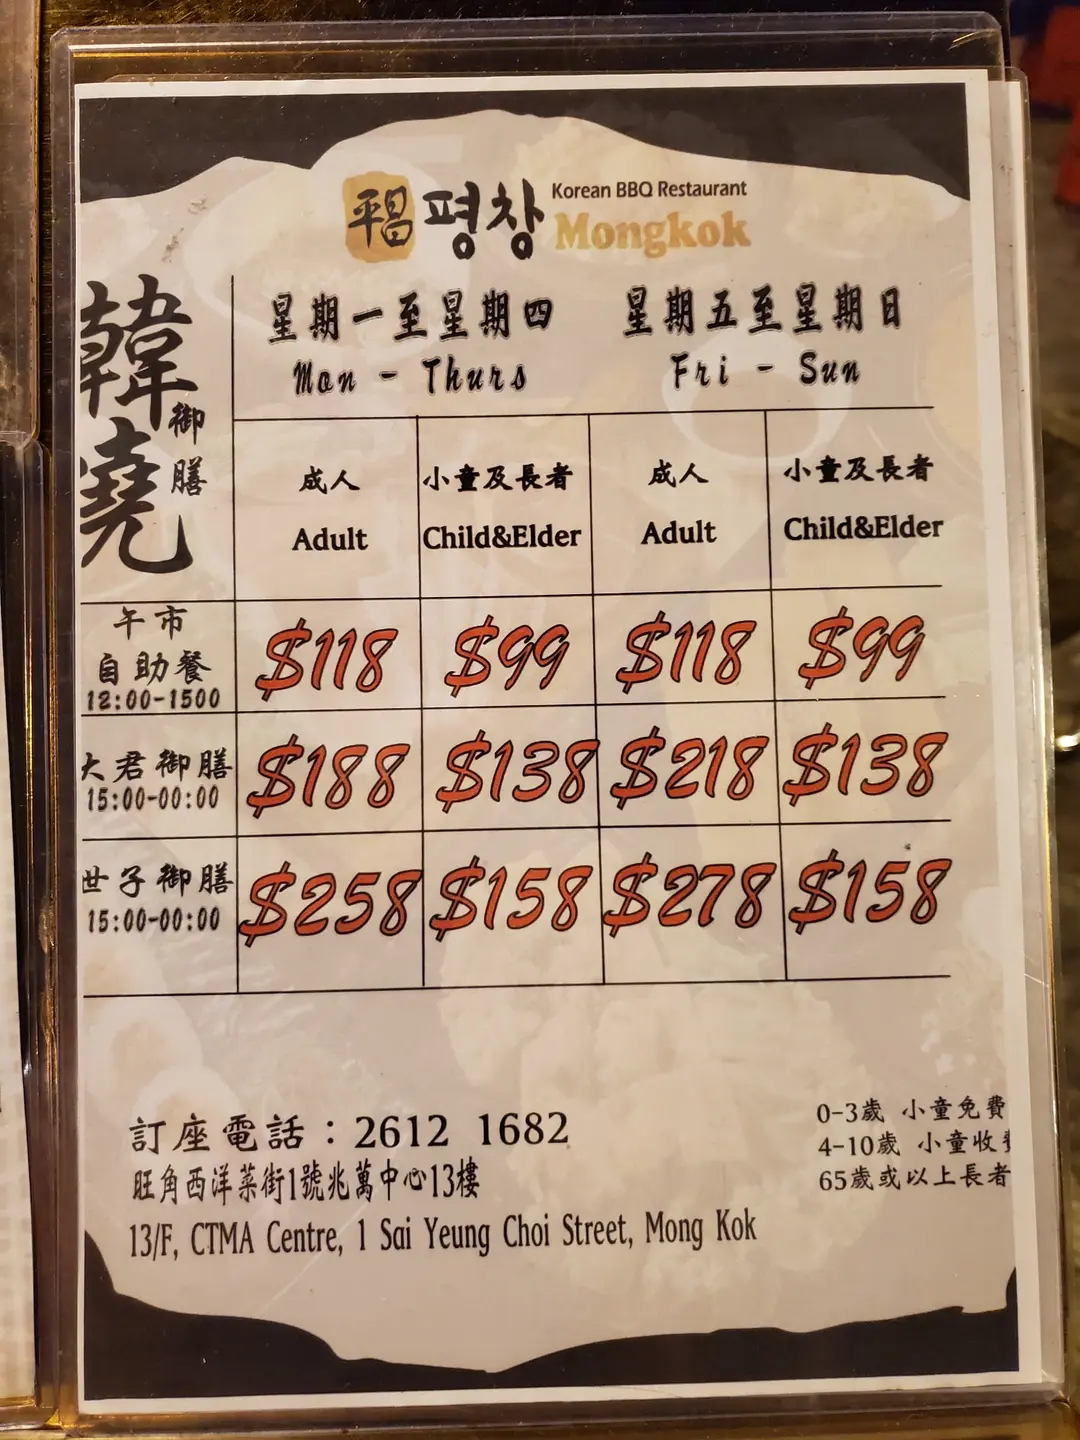 平昌 평창 Korean BBQ Restaurant
Mongkok
韓燒
御膳
星期一至星期四 星期五至星期日
Mon - Thurs Fri - Sun
成人 小童及長者 成人 小童及長者
Adult Child&Elder Adult Child&Elder
午市
自助餐
12:00-1500
$118 $99 $118 $99
大君御膳
15:00-00:00
$188 $138 $218 $138
世子御膳
15:00-00:00
$258 $158 $278 $158
訂座電話：2612 1682
旺角西洋菜街1號兆萬中心13樓
13/F, CTMA Centre, 1 Sai Yeung Choi Street, Mong Kok
0-3歲 小童免費
4-10歲 小童收
65歲或以上長者